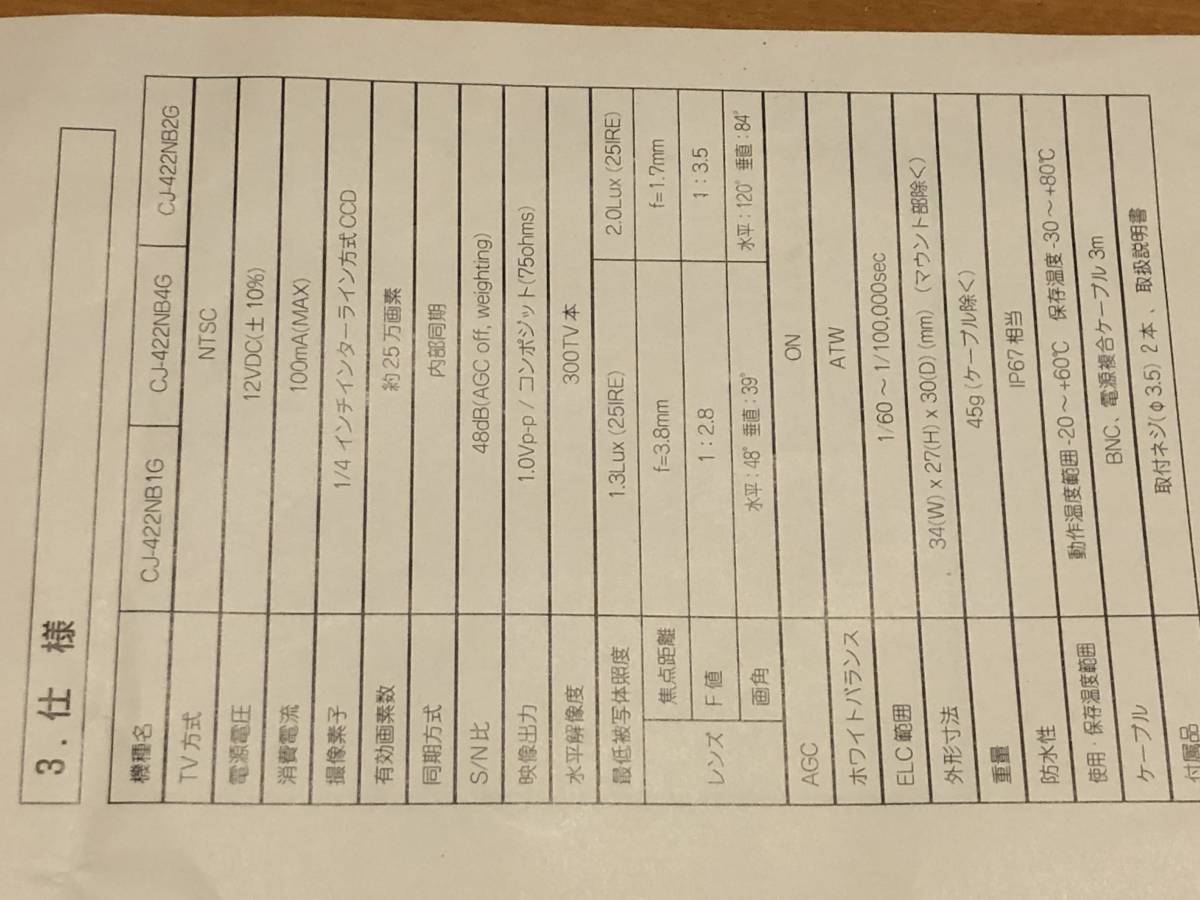 3．仕 様
機種名 CJ-422NB1G CJ-422NB4G CJ-422NB2G
TV方式 NTSC
電源電圧 12VDC(土10%)
消費電流 100mA(MAX)
撮像素子 1/4 インチインターライン方式CCD
有効画素数 約25万画素
同期方式 内部同期
S/N比 48dB(AGC off, weighting)
映像出力 1.0Vp-p / コンポジット(75ohms)
水平解像度 300TV本
最低被写体照度 1.3Lux (25IRE) 2.0Lux (25IRE)
レンズ 焦点距離 f=3.8mm f=1.7mm
F値 1：2.8 1：3.5
画角 水平：48° 垂直：39° 水平：120° 垂直：84°
AGC ON
ホワイトバランス ATW
ELC範囲 1/60～1/100,000sec
外形寸法 34(W) x 27(H) x 30(D) (mm) (マウント部除く)
重量 45g (ケーブル除く)
防水性 IP67相当
使用・保存温度範囲 動作温度範囲-20～+60℃ 保存温度-30～+80℃
ケーブル BNC、電源複合ケーブル 3m
付属品 取付ネジ(φ3.5) 2本、取扱説明書